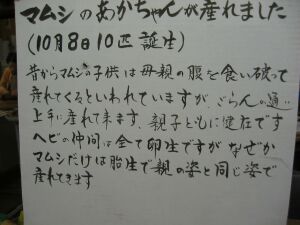 マムシのあかちゃんが産れました
(10月8日10匹誕生)
昔からマムシの子供は母親の腹を食い破って
産れてくるといわれていますが、ごらんの通り
上手に産れて来ます、親子ともに健在です
ヘビの仲間は全て卵生ですがなぜか
マムシだけは胎生で親の姿と同じ姿で
産れてきます